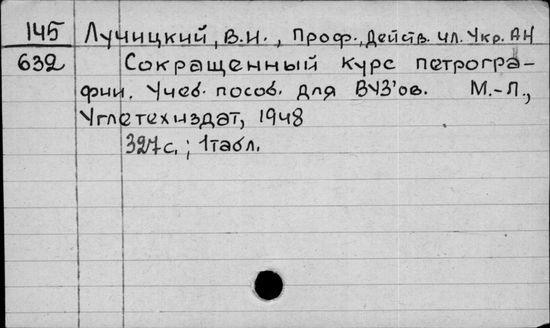 145 Лучицкий, В.И., Проф., Действ. чл. Укр. АН
632 Сокращенный курс петрогра-
фии. Учеб. пособ. для ВУЗ'ов. М.-Л.,
Углетехиздат, 1948
327 с.; 1 табл.